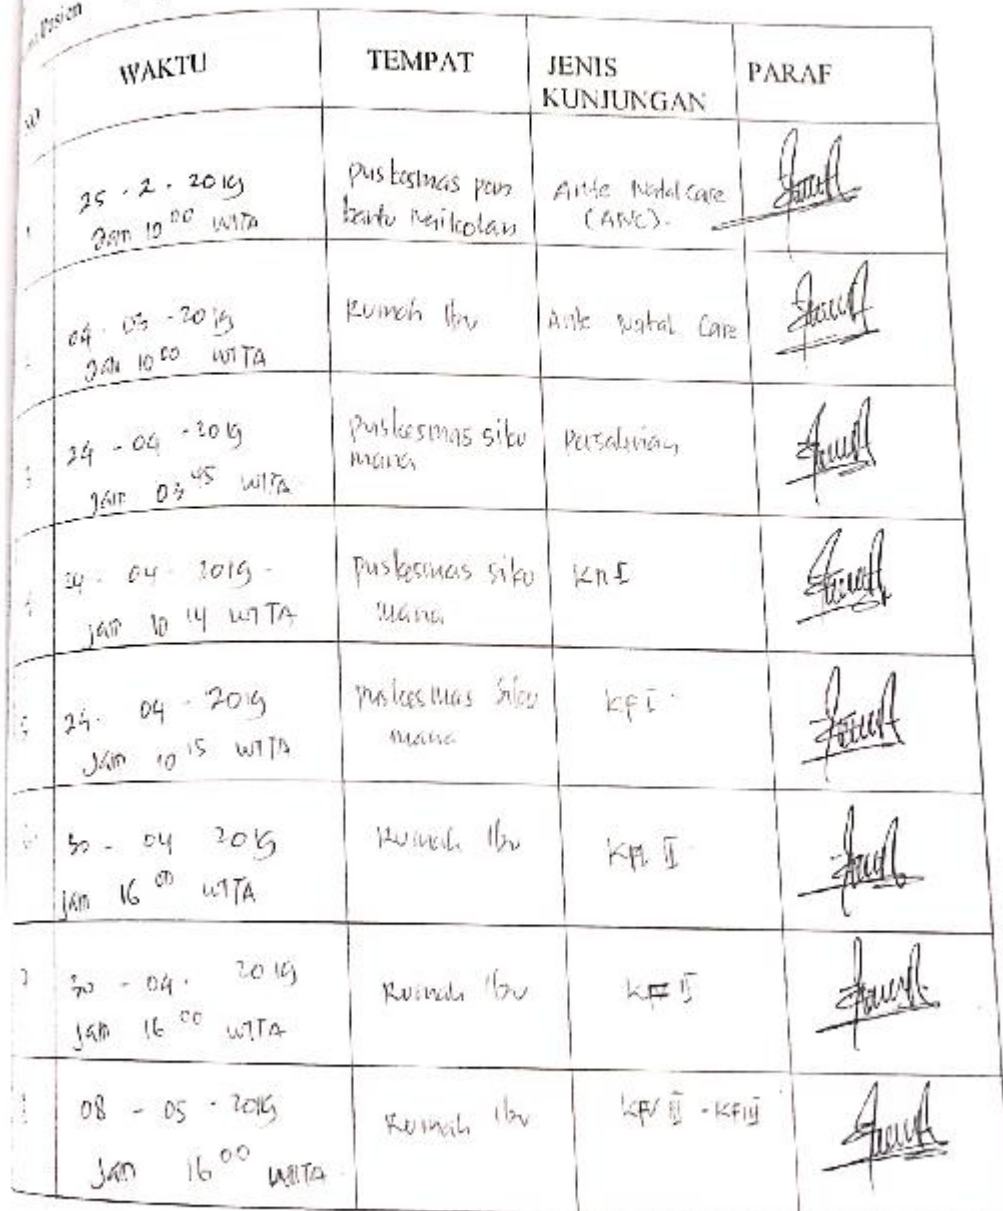 Pasien
WAKTU TEMPAT JENIS KUNJUNGAN PARAF
25 - 2 - 2019
Jam 10 00 WITA
puskesmas pem
bantu Naikolan
Ante Natal Care
(ANC).
04 - 03 - 2019
Jam 10 00 WITA
Rumah Ibu
Ante Natal Care
24 - 04 - 2019
Jam 03 45 WITA
Puskesmas siku
mana
Persalinan
24 - 04 - 2019 -
jam 10 14 WITA
puskesmas siku
mana
KN I
5
24 - 04 - 2019
Jam 10 15 WITA
puskesmas siku
mana
KF I
30 - 04 2019
jam 16 00 WITA
Rumah Ibu
II
30 - 04 - 2019
jam 16 00 WITA
Rumah Ibu
II
08 - 05 - 2019
Jam 16 00 WITA
Rumah Ibu
III - KF III